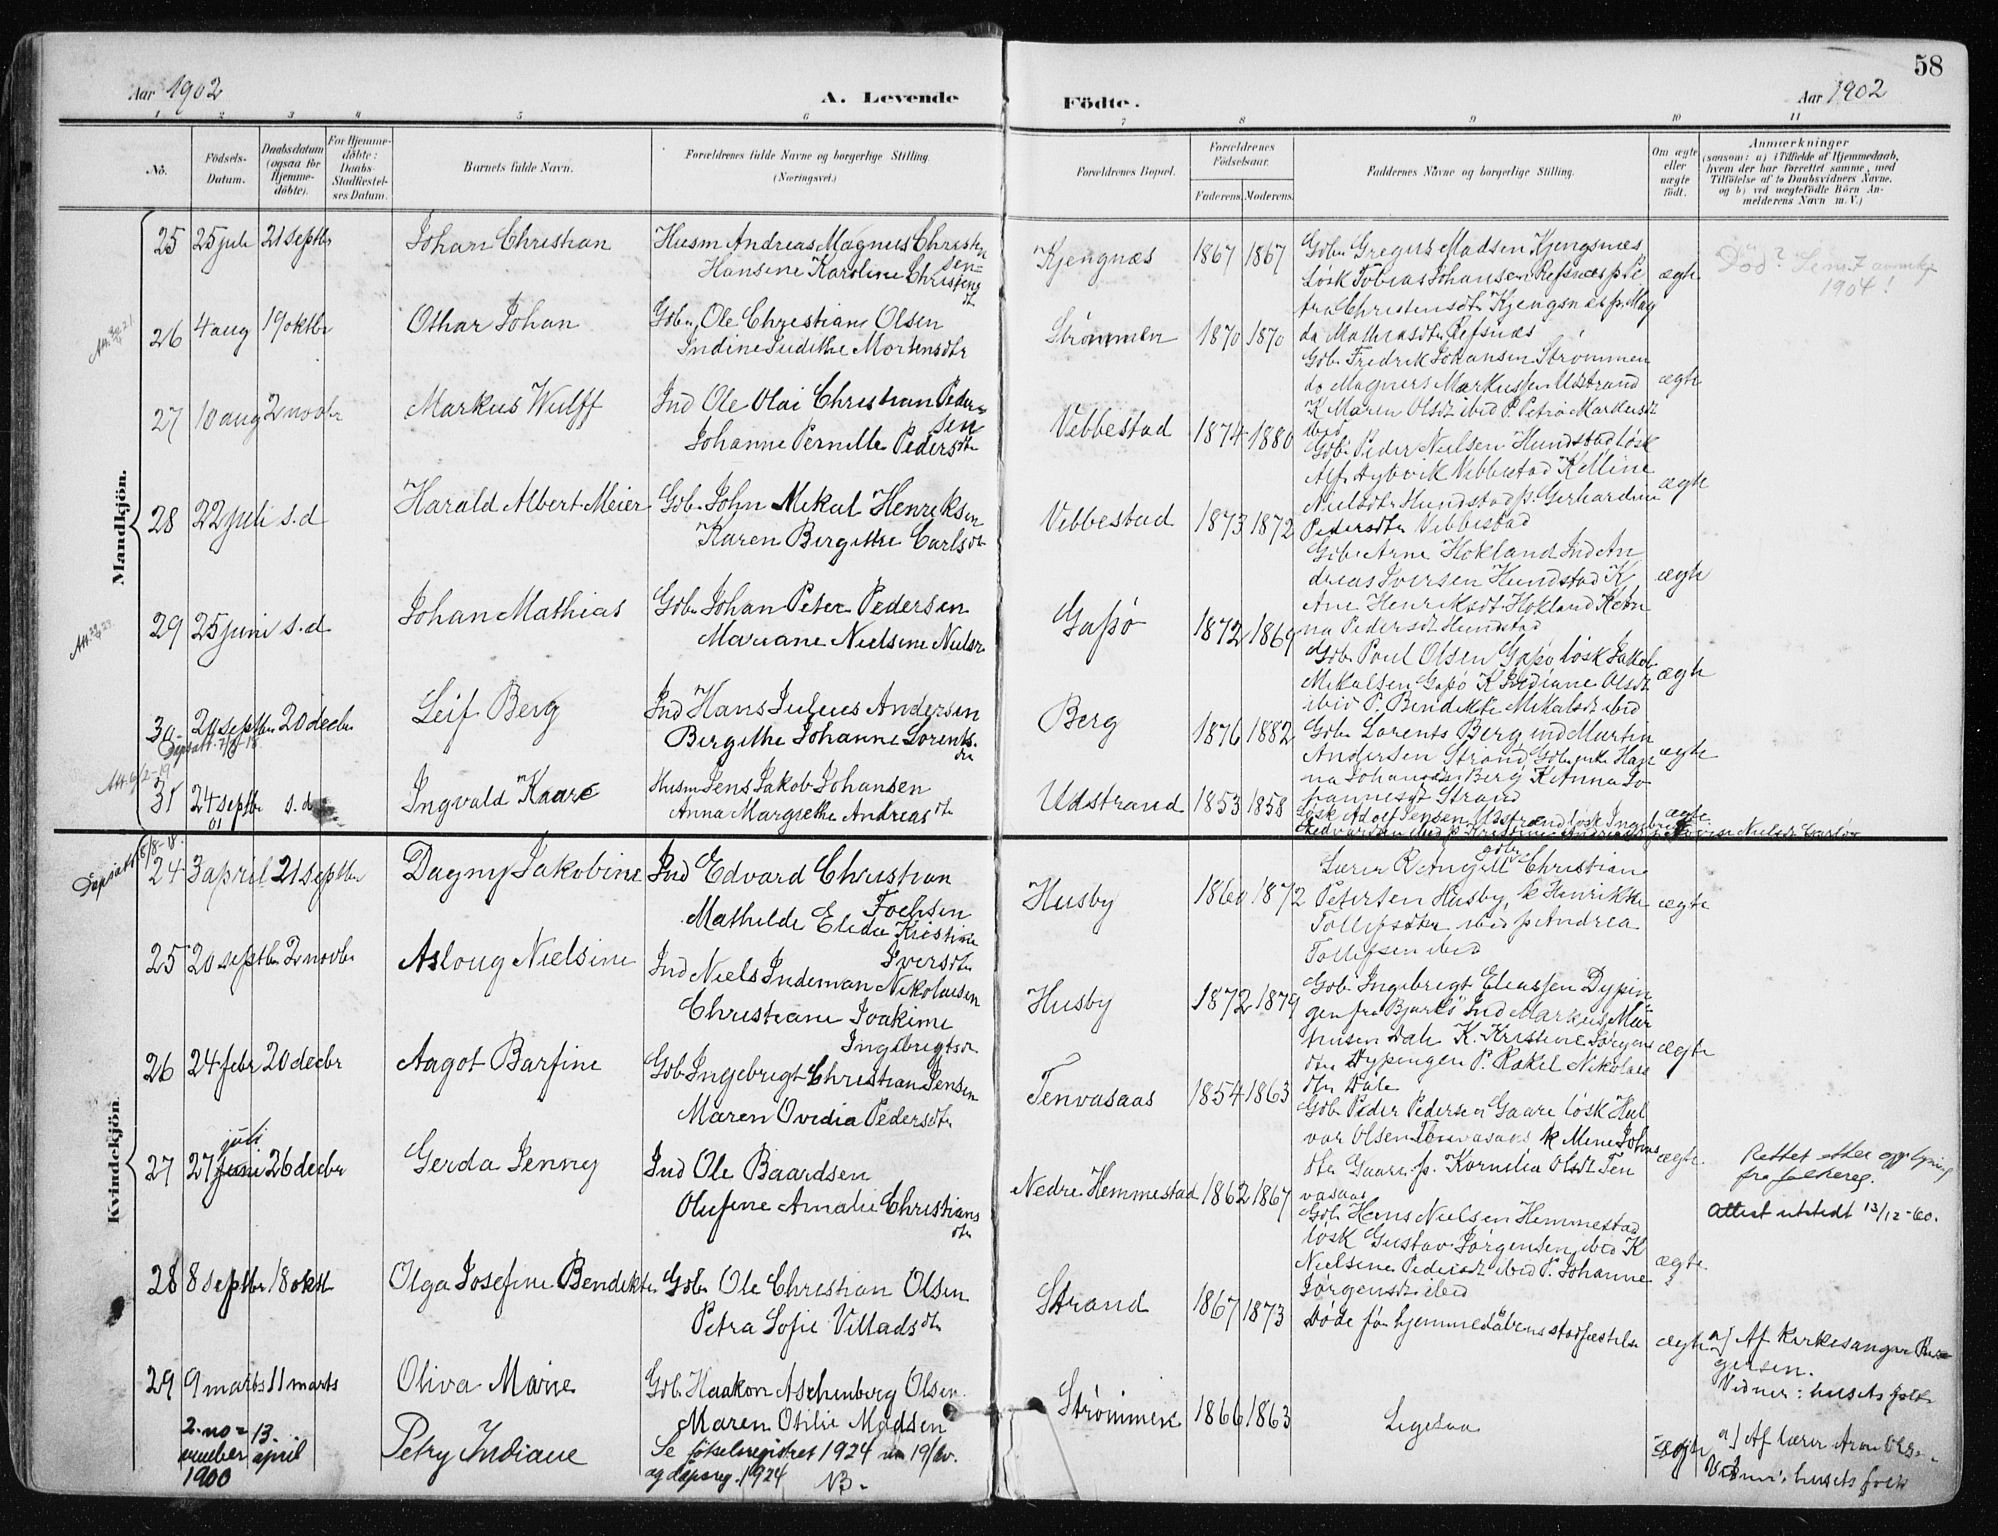 58
Aar 1902
A. Levende
Födte.
Aar 1902
1 2 3 4 5 6 7 8 9 10 11
No.
Födsels-Datum.
Daabsdatum (ogsaa for Hjemme-döbte).
For Hjemme-döbte: Daabs-Stadfæstel-ses Datum.
Barnets fulde Navn.
Forældrenes fulde Navne og borgerlige Stilling. (Næringsvei.)
Forældrenes Bopæl.
Forældrenes Födselsaar.
Faderens. Moderens.
Faddernes Navne og borgerlige Stilling.
Om ægte eller uægte födt.
Anmærkninger
(saasom: a) i Tilfælde af Hjemmedaab, hvem der har forrettet samme, med Tilföielse af to Daabsvidners Navne, og b) ved uægtefödte Börn An-melderens Navn m. V.)
Mandkjön.
25 25 juli 21 septbr Johan Christian
Husm Andreas Magnus Christensen
Hansine Karoline Christensdtr
Kjengnæs 1867 1867
Gbr. Gregus Madsen Kjengsnæs
løsk Tobias Johansen Refsnæs p Petra Christensdtr Kjengsnæs p. Magda Mathiasdtr Refsnæs
ægte
1904!
26 4 aug 19 oktbr Othar Johan
Gbr. Ole Christian Olsen
Indine Judithe Mortensdtr
Strømmen 1870 1870
Gbr Fredrik Johansen Strømmen
do Magnus Markussen Udstrand
K Maren Olsdt ibid P. Petra Markusdt
ibid
ægte
27 10 aug 2 novbr Markus Wulff
Ind Ole Olai Christian Pedersen
Johanne Pernille Pedersdtr
Vebbestad 1874 1880
Gbr. Peder Nielsen Hundstad løsk
Vebbestad K Elline
Nielsdtr Hundstad p. Gerhardine
Pedersdtr Vebbestad
ægte
28 22 juli s.d Harald Albert Meier
Gbr. John Mikal Henriksen
Karen Birgithe Carlsdtr
Vebbestad 1873 1872
Gbr. Arne Hokland Ind Andreas Iversen Hundstad K
Ane Henriksdt Hokland K Anna Pedersdt Hundstad
ægte
29 25 juni s.d Johan Mathias
Gbr. Johan Peter Pedersen
Mariane Nielsine Nielsdr
Gapø 1872 1869
Gbr. Poul Olsen Gapø løsk Jakob
Mikalsen Gapø K Indiane Olsdt
ibid P. Bendikte Mikalsdt ibid
ægte
30 20 septbr 20 decbr Leif Berg
Ind Hans Julius Andersen
Bergithe Johanne Lorentsdtr
Berg 1876 1882
Gbr. Lorents Berg ind Martin
Andersen Strand, Gbr enke Hanna Johansdtr Berg K Anna Johannesdt Strand
ægte
31 24 septbr 01 s.d Ingvald Kaare
Husm Jens Jakob Johansen
Anna Margrethe Andreasdtr
Udstrand 1853 1858
løsk Adolf Jensen Udstrand løsk
ægte
Kvindekjön
24 3 april 21 septbr Dagny Jakobine
Ind Edvard Christian
Fochsen
Mathilde Elida Kristine
Iversdtr
Husby 1860 1872
Lærer R Angell gbr Christian
Petersen Husby, k Henrikke
Tollefsdtr ibid p Andrea
Tollefsen ibid
ægte
25 20 septbr 2 novbr Asloug Nielsine
Ind Niels Indeman Nikolaisen
Christiane Joakime
Ingebrigtsdr
Husby 1872 1879
Gbr. Ingebrigt Eliassen Dypingen fra Bjarkö Ind Markus Marthinsen Dale K. Kristine Jørgensdtr Dypingen P. Rakel Nikolaidtr Dale
ægte
26 24 febr 20 decbr Aagot Barfine
Gbr Ingebrigt Christian Jensen
Maren Ovidia Pedersdtr
Tenvasaas 1854 1863
Gbr. Peder Pedersen Gaare løsk Halvar Olsen Tenvasaas k Mine Johnsdtr Gaare p. Kornelia Olsdt Tenvasaas
ægte
27 27 juni juli 26 decbr Gerda Jenny
Ind Ole Baardsen
Olufine Amalie Christiansdtr
Nedre Hemmestad 1862 1867
Gbr. Hans Nielsen Hemmestad
løsk Gustav Jørgensen, ibid K
Nielsine Pedersdt ibid P. Johanne
Jørgensdt ibid
ægte
Rettet etter opplysning
fra folkereg.
Attest utstedt 13/12-60.
28 8 septbr 18 oktbr Olga Josefine Bendikte
Gbr. Ole Christian Olsen
Petra Sofie Villadsdtr
Strand 1867 1873
Døde før hjemmedåbens stadfæstelse
ægte
a) Af Kirkesanger
Vidner: husets folk
29 9 marts 11 marts Oliva Marie
Gbr. Haakon Aschenberg Olsen
Maren Otilie Madsen
Strømmen 1866 1863
Ligesaa
ægte
a) Af lærer
Vidner: husets folk
2. november 1900 13. april Petry Indiane
Se fødselsregistret 1924 nr 19/
og dapsreg. 1924 NB.